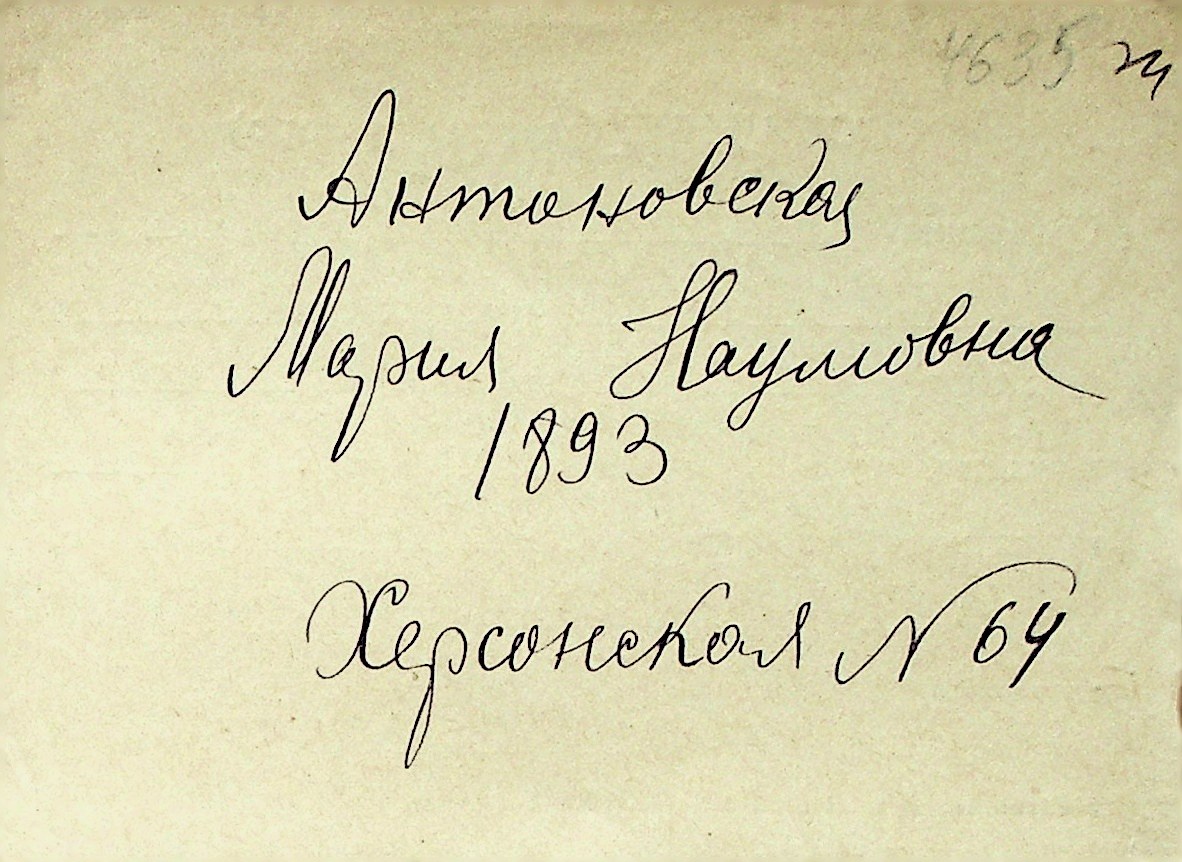 4635
Антоновская
Мария Наумовна
1893
Херсонская N 64